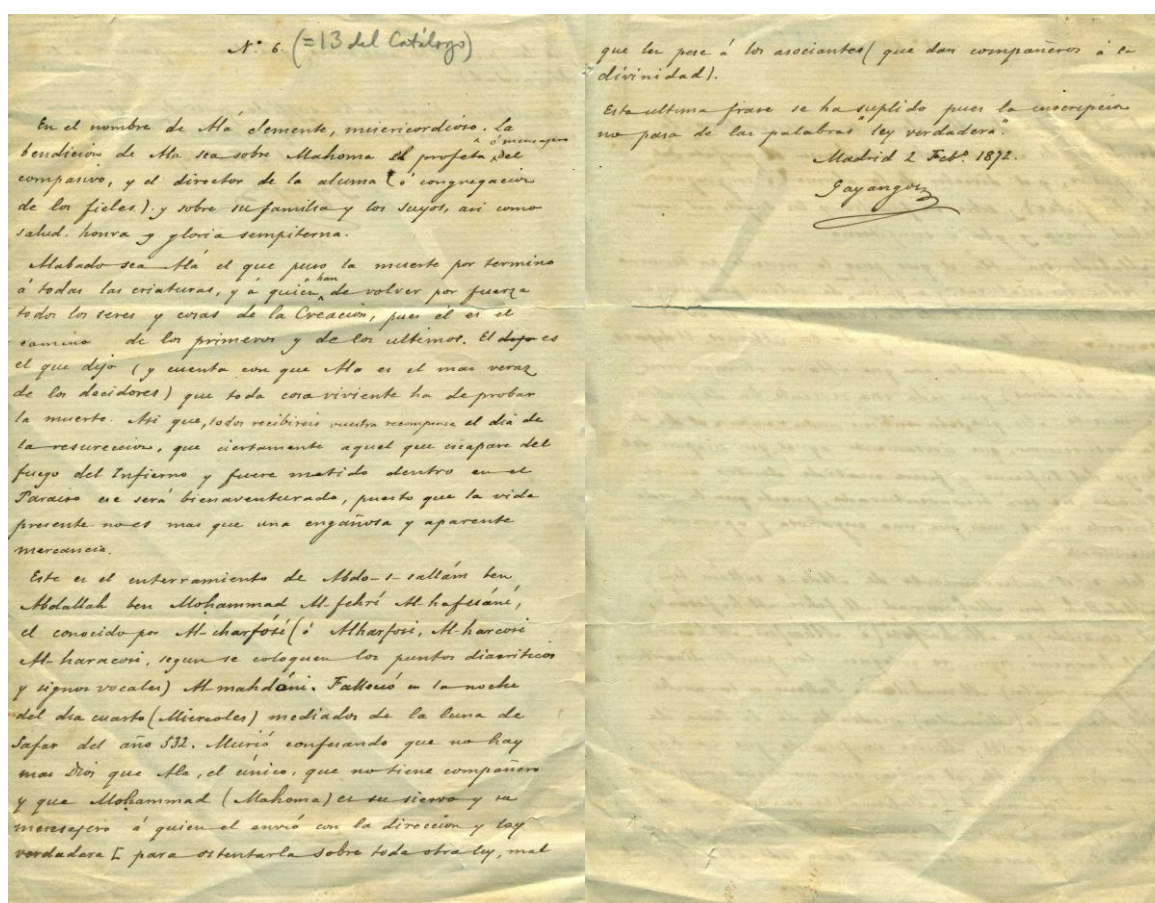 N.º 6. (=13 del Catálogo)
En el nombre de Alá clemente, misericordioso. La
bendición de Ala sea sobre Mahoma el profeta ó mensagero del
compasivo, y el director de la aluma (ó congregacion
de los fieles.) y sobre su familia y los suyos, asi como
salud. honra y gloria sempiterna.
Alabado sea Alá el que puso la muerte por termino
á todas las criaturas, y á quién han de volver por fuerza
todos los seres y cosas de la Creación, pues él es el
camino de los primeros y de los ultimos. El dijo es
el que dijo (y cuenta con que Ala es el mas veraz
de los decidores) que toda cosa viviente ha de probar
la muerte. Asi que, todos recibireis vuestra recompensa el dia de
la resureccion, que ciertamente aquel que escapare del
fuego del Infierno y fuere metido dentro en el
Paraiso ese será bienaventurado, puesto que la vida
presente no es mas que una engañosa y aparente
mercancia.
Este es el enterramiento de Abdo-s-sallám ben
Abdallah ben Mohammad Al-fehrí Al-hafesání,
el conocido por Al-charfósí (ó Alharfosi, Al-harcosi
Al-haracosi, segun se coloquen los puntos diacriticos
y signos vocales) Al-mahdáni. Falleció en la noche
del dia cuarto (Miercoles) mediados de la luna de
Safar del año 532. Murió confesando que no hay
mas Dios que Ala, el único, que no tiene compañero
y que Mohammad (Mahoma) es su siervo y su
mensagero á quien el envió con la dirección y ley
verdadera [para ostentarla sobre toda otra ley, mal
que les pese á los asociantes (que dan compañeros á la
divinidad).
Esta ultima frase se ha suplido pues la inscripcion
no pasa de las palabras "ley verdadera".
Madrid 2 Feb.º 1872.
Gayangos